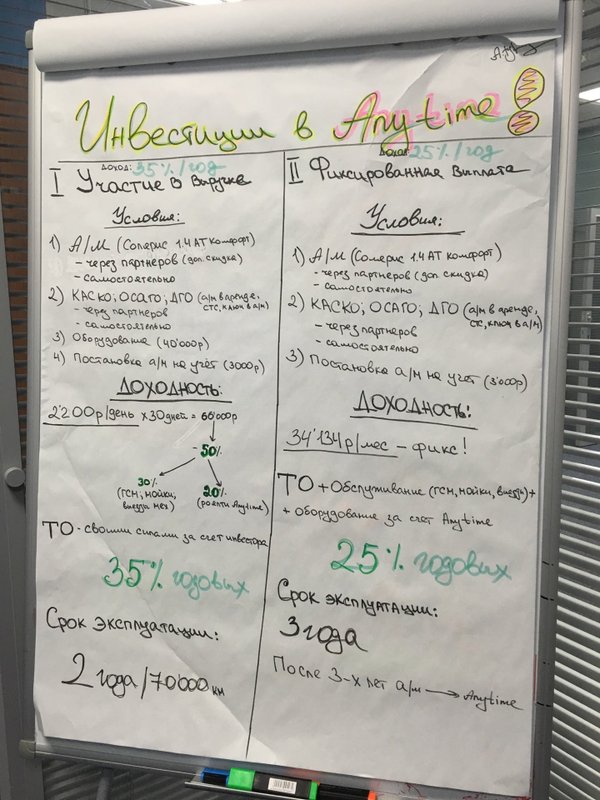 Инвестиции в Anytime
Доход: 35%/год
I Участие в выручке
Условия:
1) А/М (Солярис 1.4 АТ комфорт)
- через партнеров (доп. скидка)
- самостоятельно
2) КАСКО; ОСАГО; ДГО (а/м в аренде,
СТС, ключ в а/м)
- через партнеров
- самостоятельно
3) Оборудование (40'000р)
4) Постановка а/м на учёт (3000р)
Доходность:
2'200р/день х 30 дней = 66'000р
- 50%
30%
(ГСМ, мойки,
20%
(роялти Anytime)
ТО - своими силами за счет инвестора
35% годовых
Срок эксплуатации:
2 года/70000 км
Доход 25%/год
II Фиксированная выплата
Условия:
1) А/М (Солярис 1.4 АТ комфорт)
- через партнеров (доп. скидка)
- самостоятельно
2) КАСКО; ОСАГО; ДГО (а/м в аренде,
СТС, ключ в а/м)
- через партнеров
- самостоятельно
3) Постановка а/м на учёт (3'000р)
Доходность:
34'134р/мес - фикс!
ТО + Обслуживание (ГСМ, мойки, выезды) +
+ оборудование за счет Anytime
25% годовых
Срок эксплуатации:
3 года
После 3-х лет а/м → Anytime